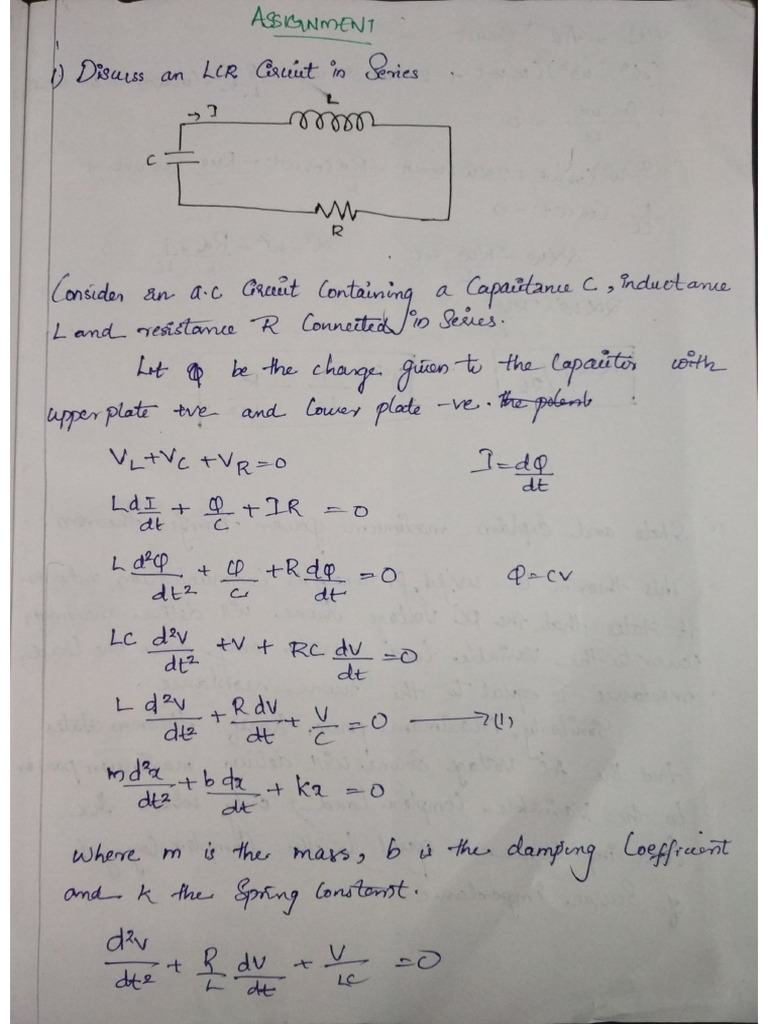 ASSIGNMENT
1) Discuss an LCR Circuit in Series
→ I
L
C
R
Consider an a.c Circuit Containing a Capacitance C, inductance
L and resistance R Connected in Series.
Let φ be the charge given to the Capacitor with
upper plate +ve and lower plate -ve. the potent
V_L + V_C + V_R = 0 I = dφ/dt
L dI/dt + φ/C + IR = 0
L d²φ/dt² + φ/C + R dφ/dt = 0 φ = CV
LC d²V/dt² + V + RC dV/dt = 0
L d²V/dt² + R dV/dt + V/C = 0 → (1)
m d²x/dt² + b dx/dt + kx = 0
where m is the mass, b is the damping Coefficient
and k the Spring Constant.
d²V/dt² + R/L dV/dt + V/LC = 0